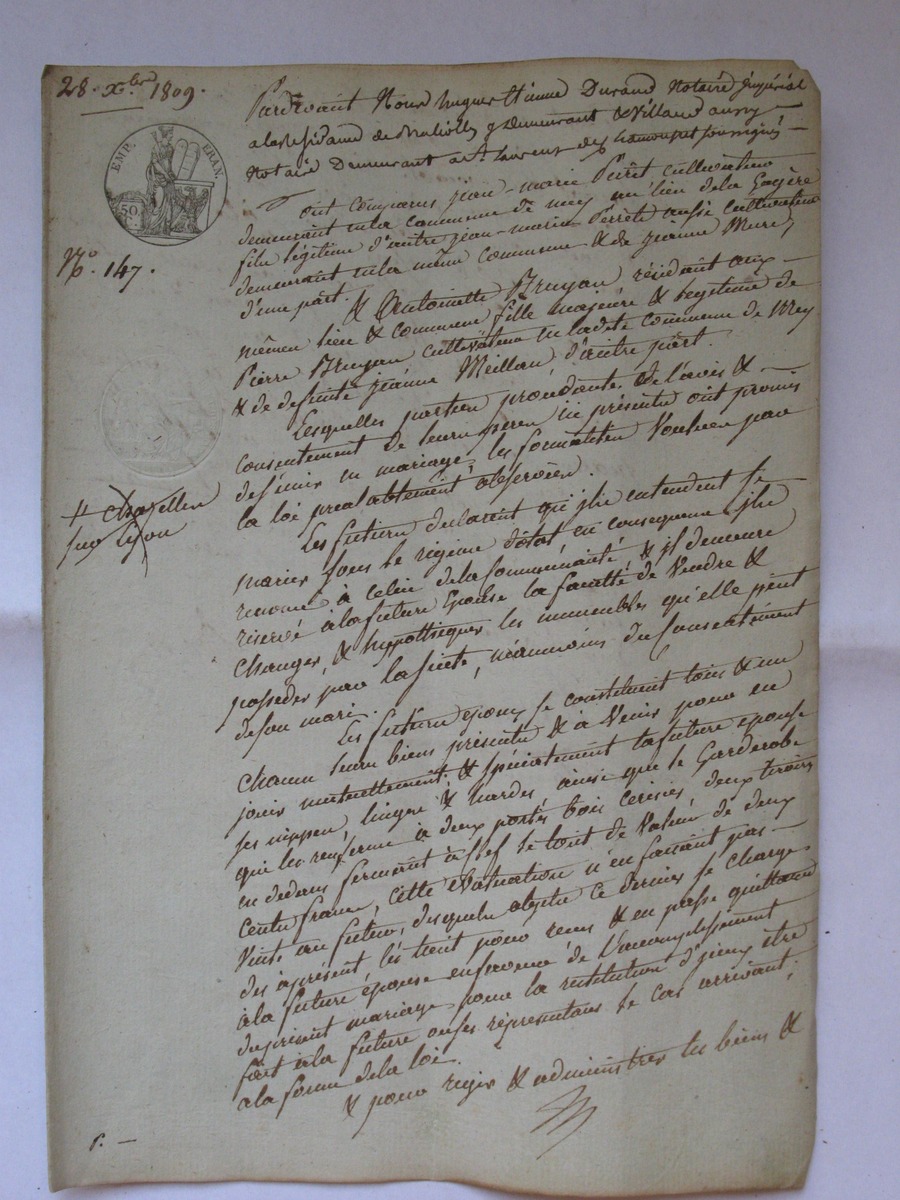 28. Xbre 1809.
EMP. FRAN.
50 C.
No. 147.
Pardevant Nous hugues Etienne Durand Notaire Impérial
a la Residance de y Demeurant & Villand aussy
Notaire Demeurant a St. Laurent de Chamousset soussignés —
ont comparus jean-marie Perêt cultivateur
demeurant en la commune de mey au lieu de la
fils légitime d'autre jean-marie Perret aussi cultivateur
demeurant en la même commune & de jeanne Mure,
d'une part.
& Antoinette Bruyan résidant aux —
mêmes lieu & commune fille majeure & legitime de
Pierre Bruyan cultivateur en ladite commune de Mey
& de defunte jeanne Meillan, d'autre part.
Lesquelles parties procédantes de l'avis & —
consentement de leurs peres ici présents ont promis
de s'unir en mariage, les formalités Voulues par
la loi préalablement observées.
4 chazelles
sur Lyon
Les futurs declarent qu'ils entendent se
marier sous le régime dotal en consequence ils
renonce a celui de la Communauté & il demeure
réservé à la future Epouse la faculté de Vendre &
changer, & hyppothéquer les immeubles qu'elle peut
posseder pour la suite, néanmoins du Consentement
de son mari.
Les futurs epoux se constituent tous & un
chacun leurs biens présents & à Venir pour en
jouir mutuellement, & spécialement la future epouse
ses nippes, linges & hardes ainsi que le Garderobe
qui les renferme à deux portes bois cerisier, deux tiroirs
en dedans fermant à clef le tout de Valeur de deux
Cents francs, cette évaluation n'en faisant pas —
Vente au futur, desquels objets ce dernier se charge
des à présent, les tient pour reçus & en passe quittance
à la future épouse en faveur de l'accomplissement
du présent mariage pour la restitution d'iceux être
fait à la future ou ses réprésentans le cas arrivant,
a la forme de la loi.
& pour regir & administrer les biens &